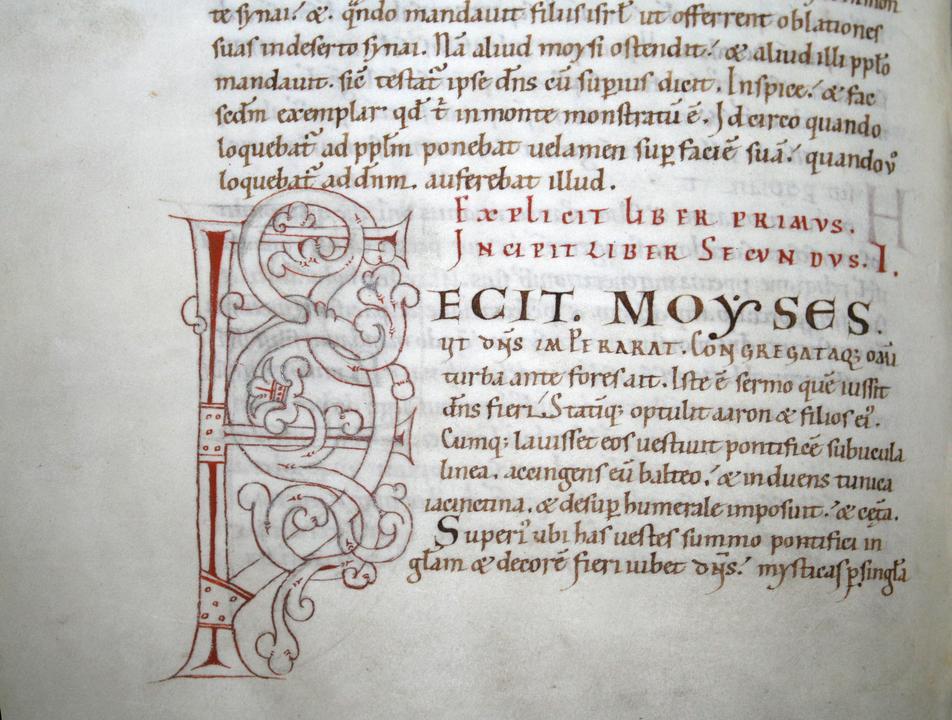 te synai. & qn̄do mandauit filiis isrl̄ ut offerrent oblationes
suas in deserto synai. Nā aliud moysi ostendit. & aliud illi pplo
mandauit. sic̄ testat᷑ ipse dn̄s cū supius dicit. Inspice. & fac
scdm̄ exemplar qd̄ t̄ in monte monstratū ē. Idcirco quando
loquebat᷑ ad pplm̄ ponebat uelamen sup faciē suā. quando ů
loquebat᷑ ad dnm̄. auferebat illud.
EXPLICIT LIBER PRIMVS.
INCIPIT LIBER SECVNDVS. I.
FECIT. MOYSES
UT DN̄S IMPERARAT. CONGREGATAQ; om̄i
turba ante fores ait. Iste ē sermo quē iussit
dn̄s fieri. Statīq; optulit aaron & filios ei᷒.
Cumq; lauisset eos uestiuit pontificē subucula
linea. accingens eū balteo. & induens tunica
iacinctina. & desup humerale imposuit. & cet̄a.
Superi᷒ ubi has uestes summo pontifici in
glām & decorē fieri iubet dn̄s. mysticas p singla